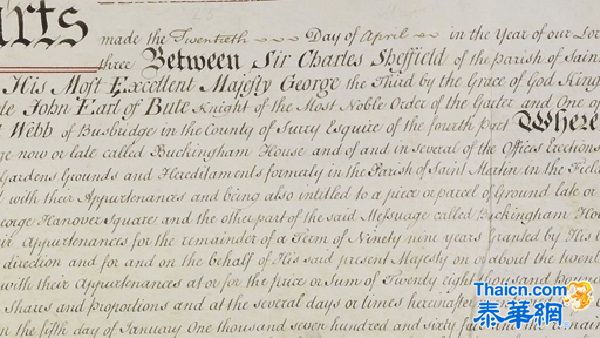 arts made the Twentieth Day of April in the Year of our Lor
three Between Sir Charles Sheffield of the Parish of Sain
His Most Excellent Majesty George the Third by the Grace of God King
John Earl of Bute Knight of the Most Noble Order of the Garter and One of
Webb of Busbridge in the County of Surry Esquire of the fourth part Where
ge now or late called Buckingham House and of and in several of the Offices Erections
Gardens Grounds and Hereditaments formerly in the Parish of Saint Martin in the Field
with their Appurtenances and being also intitled to a piece or parcel of Ground late or
George Hanover Square and the other part of the said Messuage called Buckingham Ho
eir Appurtenances for the remainder of a Term of Ninety nine years Granted by His
direction and for and on the behalf of His said present Majesty on or about the twent
with their Appurtenances at or for the price or Sum of Twenty eight thousand pounds
Shares and proportions and at the several days or times hereinafter
on the fifth day of January One thousand seven hundred and sixty and the remain
Thaicn.com
泰華網